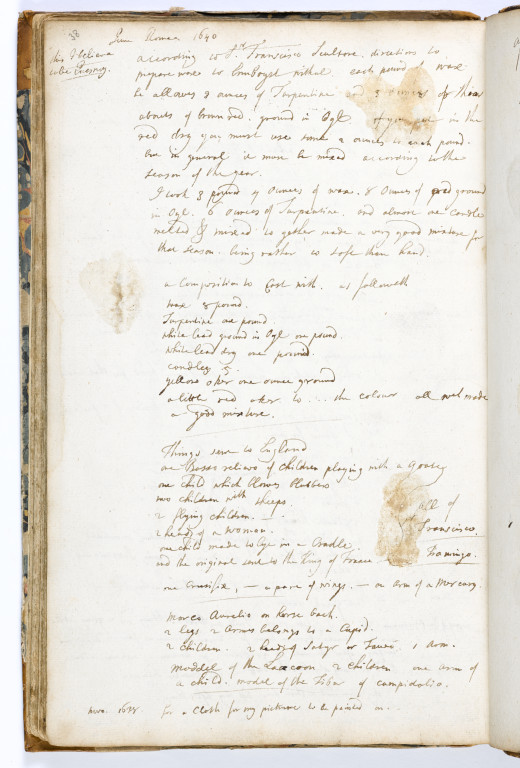 58
June Roma 1640
this I believe
to be Fresnoy.
according to Sr. Francisco Scultore. directions to
prepare waxe to Combogst withal. each pound of wax.
he allowes 3 ounces of Turpentine and 3 ounces of
abouts of brown red. ground in Oyl if you put in the
red dry you must use some 2 ounces to each pound.
but in general it must be mixed according to the
season of the year.
I took 3 pound 4 Ounces of wax. 8 Ounces of red ground
in Oyl. 6 Ounces of Turpentine. and almost one candle
melted & mixed to gether made a very good mixture for
that season. being rather to soft than hard.
a Composition to Cast with. as followeth
wax 8 pound.
Turpentine one pound
white lead ground in Oyl one pound.
white lead dry one pound.
candles 5.
yellow oker one ounce ground
a little red oker to ... the colour all wel made
a good mixture.
Things sent to England
one Basso relievo of Children playing with a Goate
one Child which blowes blubbers
two children with sheeps.
2 flying children.
2 heads of a Woman.
one child made to Lye in a Cradle
and the original sent to the King of France
All of
Francisco
Fiamingo.
one Crucifix, - a pare of wings. - an arm of a Mercury.
Marco Aurelio on horse back.
2 legs 2 Armes belongs to a Cupid.
2 Children. 2 heads of Satyr or Fauni. 1 Arm.
Moddel of the Laocoon 2 children one arm of
a child. model of the Tiber of Campidolio.
1638 for a Cloth for my picture to be painted on.